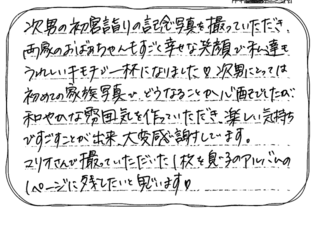 次男の初宮詣りの記念写真を撮っていただき、
両家のおばあちゃんもすごく幸せな笑顔が私達も
うれしい气モチで一杯になりました♡次男にとっては
初めての家族写真で、どうなることか心配でしたが
和やかな雰囲気を作っていただき、楽しい気持ち
ですごすことが出来、大変感謝しています。
マリオさんで撮っていただいた1枚を息子のアルバムの
1ページに残したいと思います♡